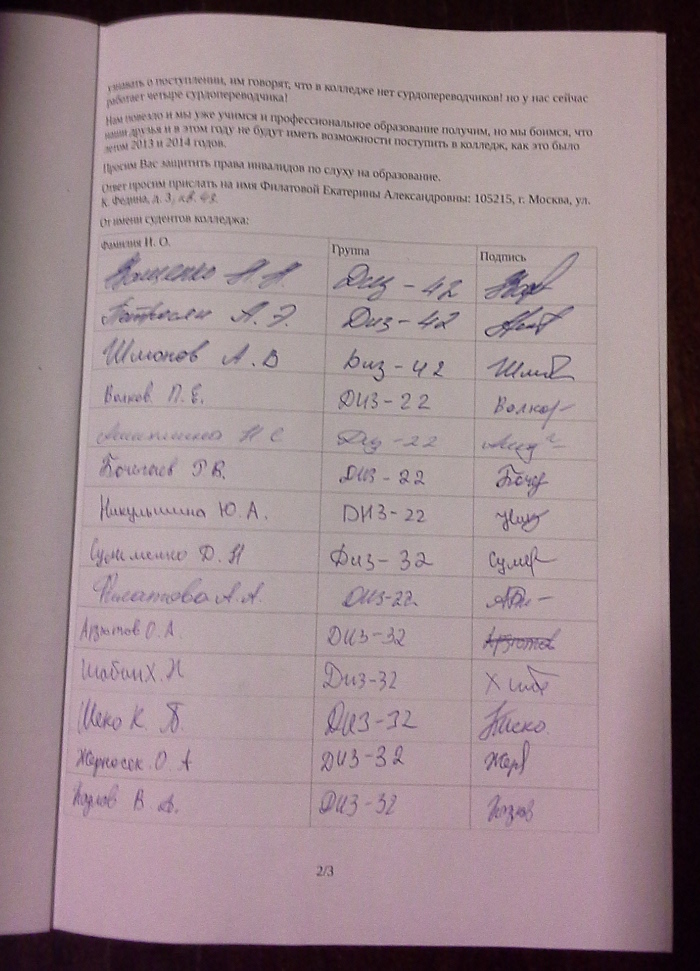 узнавать о поступлении, им говорят, что в колледже нет сурдопереводчиков! но у нас сейчас
работает четыре сурдопереводчика!
Нам повезло и мы уже учимся и профессиональное образование получим, но мы боимся, что
наши друзья и в этом году не будут иметь возможности поступить в колледж, как это было
летом 2013 и 2014 годов.
Просим Вас защитить права инвалидов по слуху на образование.
Ответ просим прислать на имя Филатовой Екатерины Александровны: 105215, г. Москва, ул.
К. Федина, д. 3, кв. 43.
От имени судентов колледжа:
Фамилия И. О. Группа Подпись
Диз-42
Петросян А. Э. Диз-42
Шмонов А. В Диз-42
Волков П. Е. ДИЗ-22 Волков
Диз-22
Р. В. ДИЗ-22 Бочог
Никулышина Ю. А. ДИЗ-22
Д. Н Диз-32 Сумер
Филатова А. А. ДИЗ-22
Арзютов О. А. ДИЗ-32 Арзютов
Шабан Х. Н Диз-32
Шеко К. В. ДИЗ-32
Жерносек О. А ДИЗ-32 Жерн
Козлов В. А. ДИЗ-32 Козлов
2/3